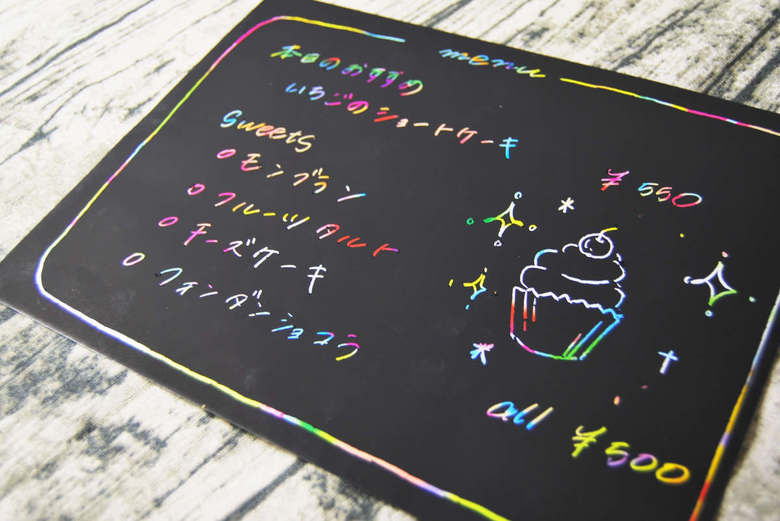 menu
本日のおすすめ
いちごのショートケーキ
¥550
sweets
○ モンブラン
○ フルーツタルト
○ チーズケーキ
○ フォンダンショコラ
all ¥500